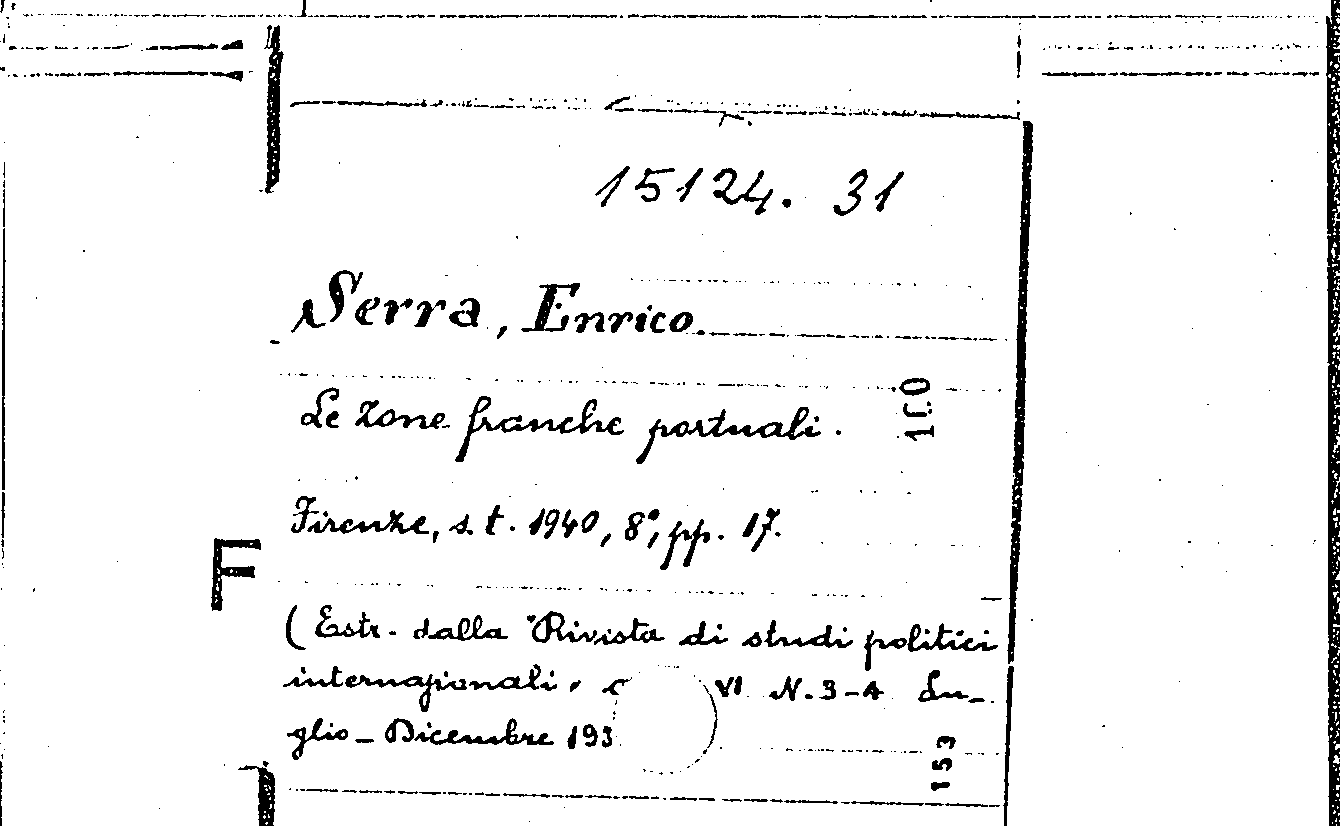 15124. 31
Serra, Enrico.
Le zone franche portuali.
Firenze, s. t. 1940, 8°, pp. 17.
F
(Estr. dalla "Rivista di studi politici
internazionali, VI N. 3-4 Lu-
glio - Dicembre 193
153